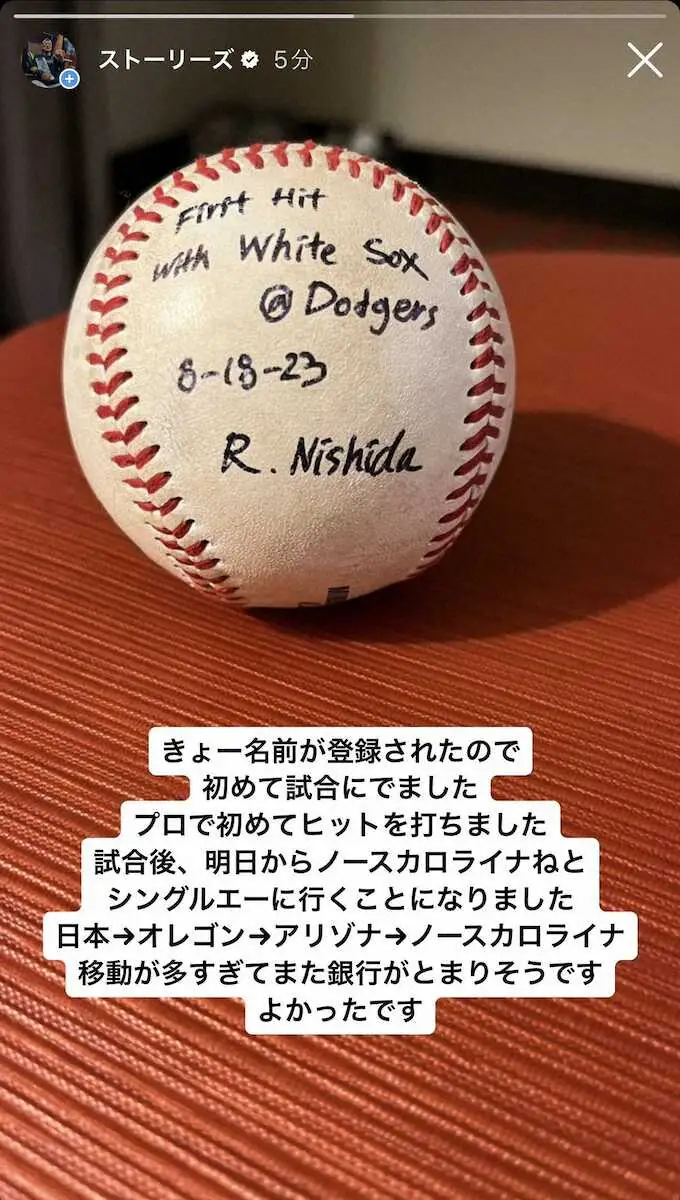 ストーリーズ 5分
First Hit
with White Sox
@Dodgers
8-18-23
R. Nishida
きょー名前が登録されたので
初めて試合にでました
プロで初めてヒットを打ちました
試合後、明日からノースカロライナねと
シングルエーに行くことになりました
日本→オレゴン→アリゾナ→ノースカロライナ
移動が多すぎてまた銀行がとまりそうです
よかったです